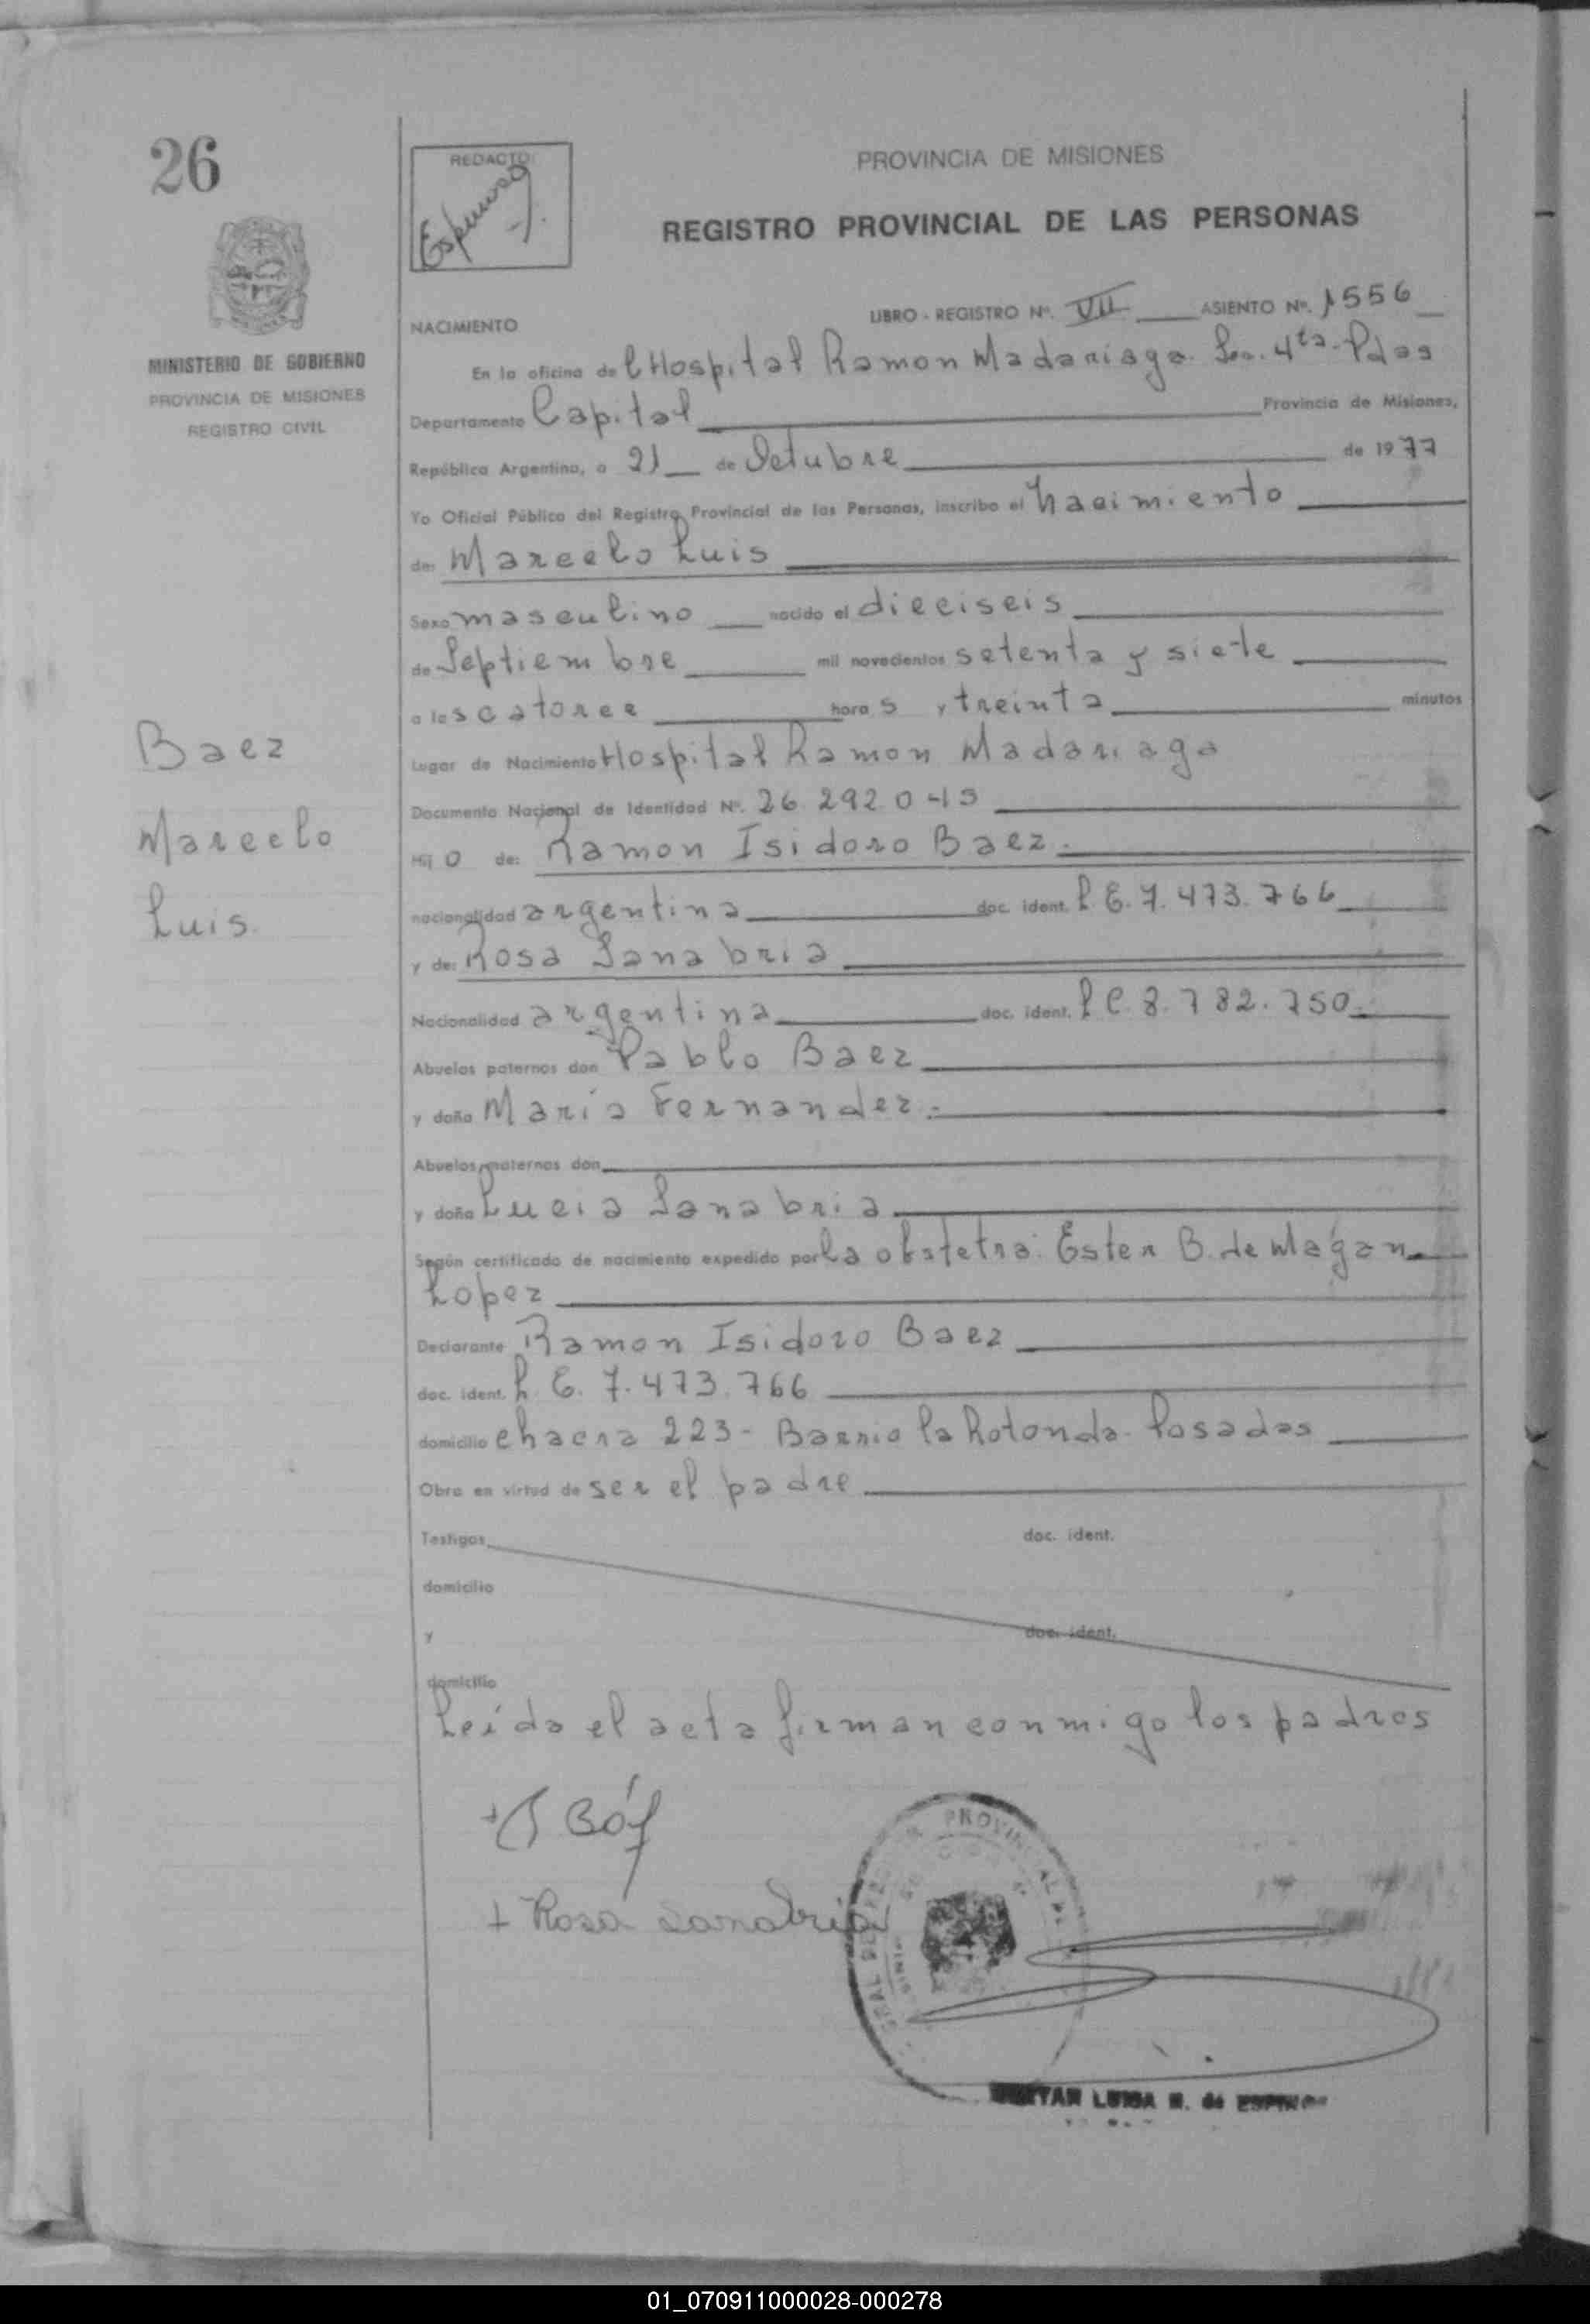 26
REDACTO:
PROVINCIA DE MISIONES
REGISTRO PROVINCIAL DE LAS PERSONAS
MINISTERIO DE GOBIERNO
PROVINCIA DE MISIONES
REGISTRO CIVIL
NACIMIENTO
LIBRO - REGISTRO Nº. VII ASIENTO Nº. 1556
En la oficina del Hospital Ramon Madariaga Sec. 4ta. Pdas
Departamento Capital Provincia de Misiones,
República Argentina, a 21 de Octubre de 1977
Yo Oficial Público del Registro Provincial de las Personas, inscribo el nacimiento
de: Marcelo Luis
Sexo masculino nacido el dieciseis
de Septiembre mil novecientos setenta y siete
a las catorce horas y treinta minutos
Baez
Marcelo
Luis.
Lugar de Nacimiento Hospital Ramon Madariaga
Documento Nacional de Identidad Nº. 26 292 045
Hijo de: Ramon Isidoro Baez.
nacionalidad argentina doc. ident. L E. 7. 473. 766
y de: Rosa Sanabria
Nacionalidad argentina doc. ident. L C 8. 782. 750.
Abuelos paternos don Pablo Baez
y doña Maria Fernandez.
Abuelos maternos don
y doña Lucia Sanabria
Según certificado de nacimiento expedido por la obstetra: Ester B. de Magan
Lopez
Declarante Ramon Isidoro Baez
doc. ident. L. E. 7. 473. 766
domicilio chacra 223 - Barrio la Rotonda - Posadas
Obra en virtud de ser el padre
Testigos doc. ident.
domicilio
y doc. ident.
domicilio
Leída el acta firman conmigo los padres
+ Rosa sanabria
LUISA R. de
01_070911000028-000278